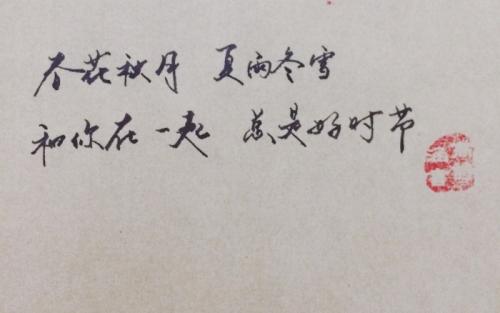 春花秋月 夏雨冬雪
和你在一起 总是好时节